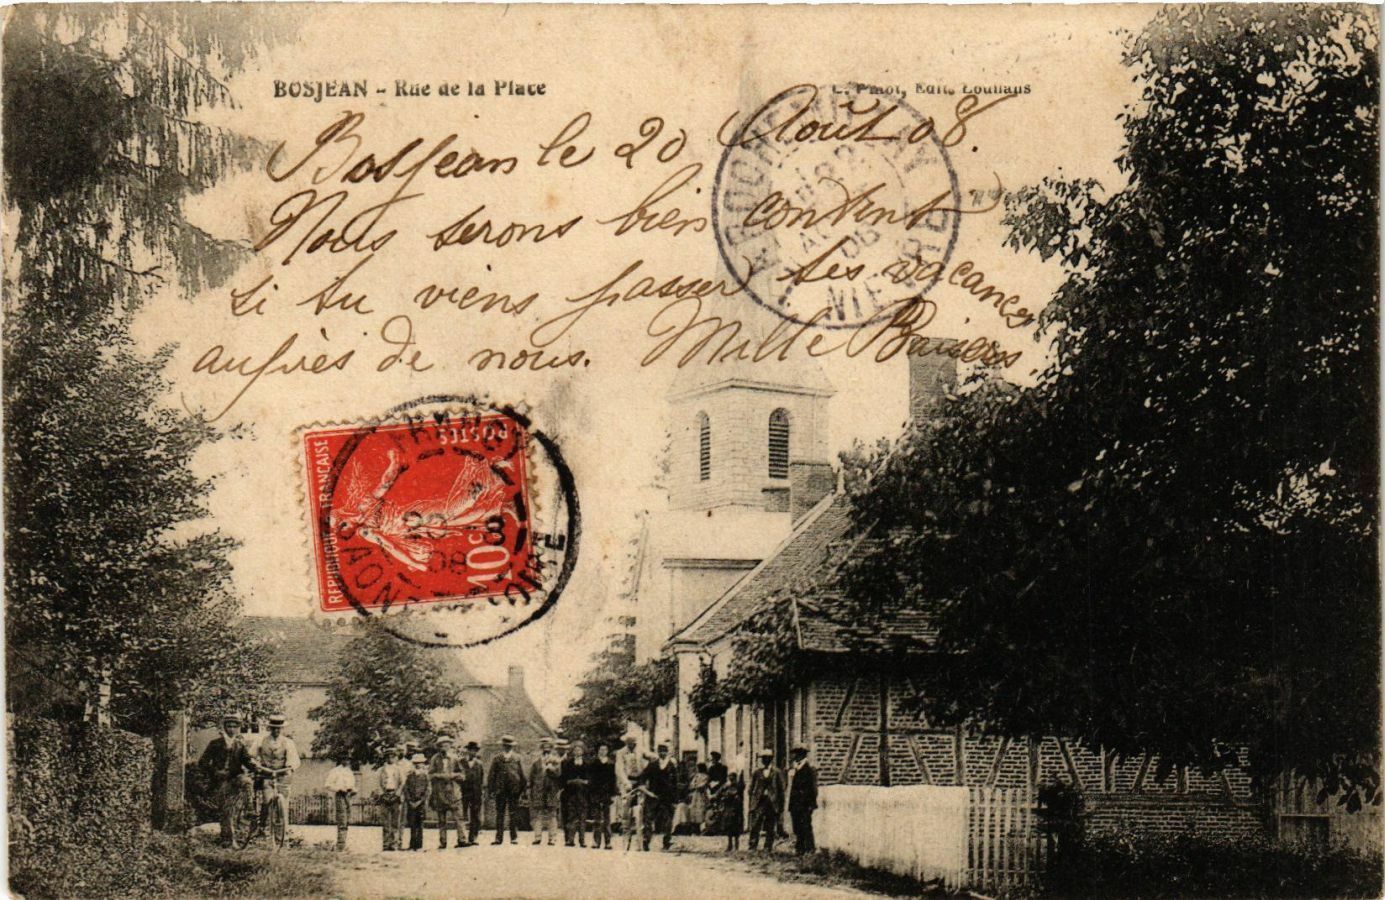 BOSJEAN - Rue de la Place
C. Pinot, Edit. Louhans
Bosjean le 20 Août 08.
Nous serons bien content
si tu viens passer tes vacances
auprès de nous. Mille Baisers
RÉPUBLIQUE FRANÇAISE
POSTES
10c
SAÔNE
LOIRE
08
NIÈVRE